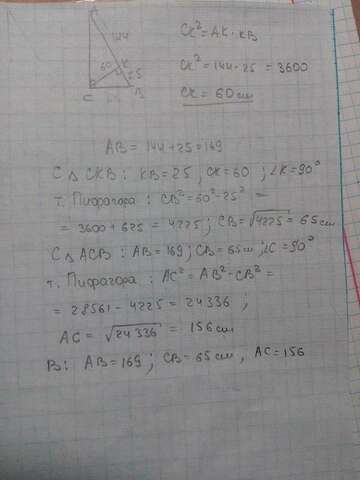 144
60
K
25
C
B
CK² = AK · KB
CK² = 144 · 25 = 3600
CK = 60 см
AB = 144 + 25 = 169
С Δ CKB : KB = 25 ; CK = 60 ; ∠K = 90°
т. Пифагора : CB² = 60² - 25² =
= 3600 + 625 = 4225 ; CB = √4225 = 65 см
С Δ ACB : AB = 169 ; CB = 65 см ; ∠C = 90°
т. Пифагора : AC² = AB² - CB² =
= 28561 - 4225 = 24336 ;
AC = √24336 = 156 см
В : AB = 169 ; CB = 65 см , AC = 156